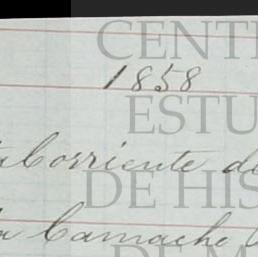 CENT
1858
ESTU
Corriente de
DE HIS
Camacho
DE M